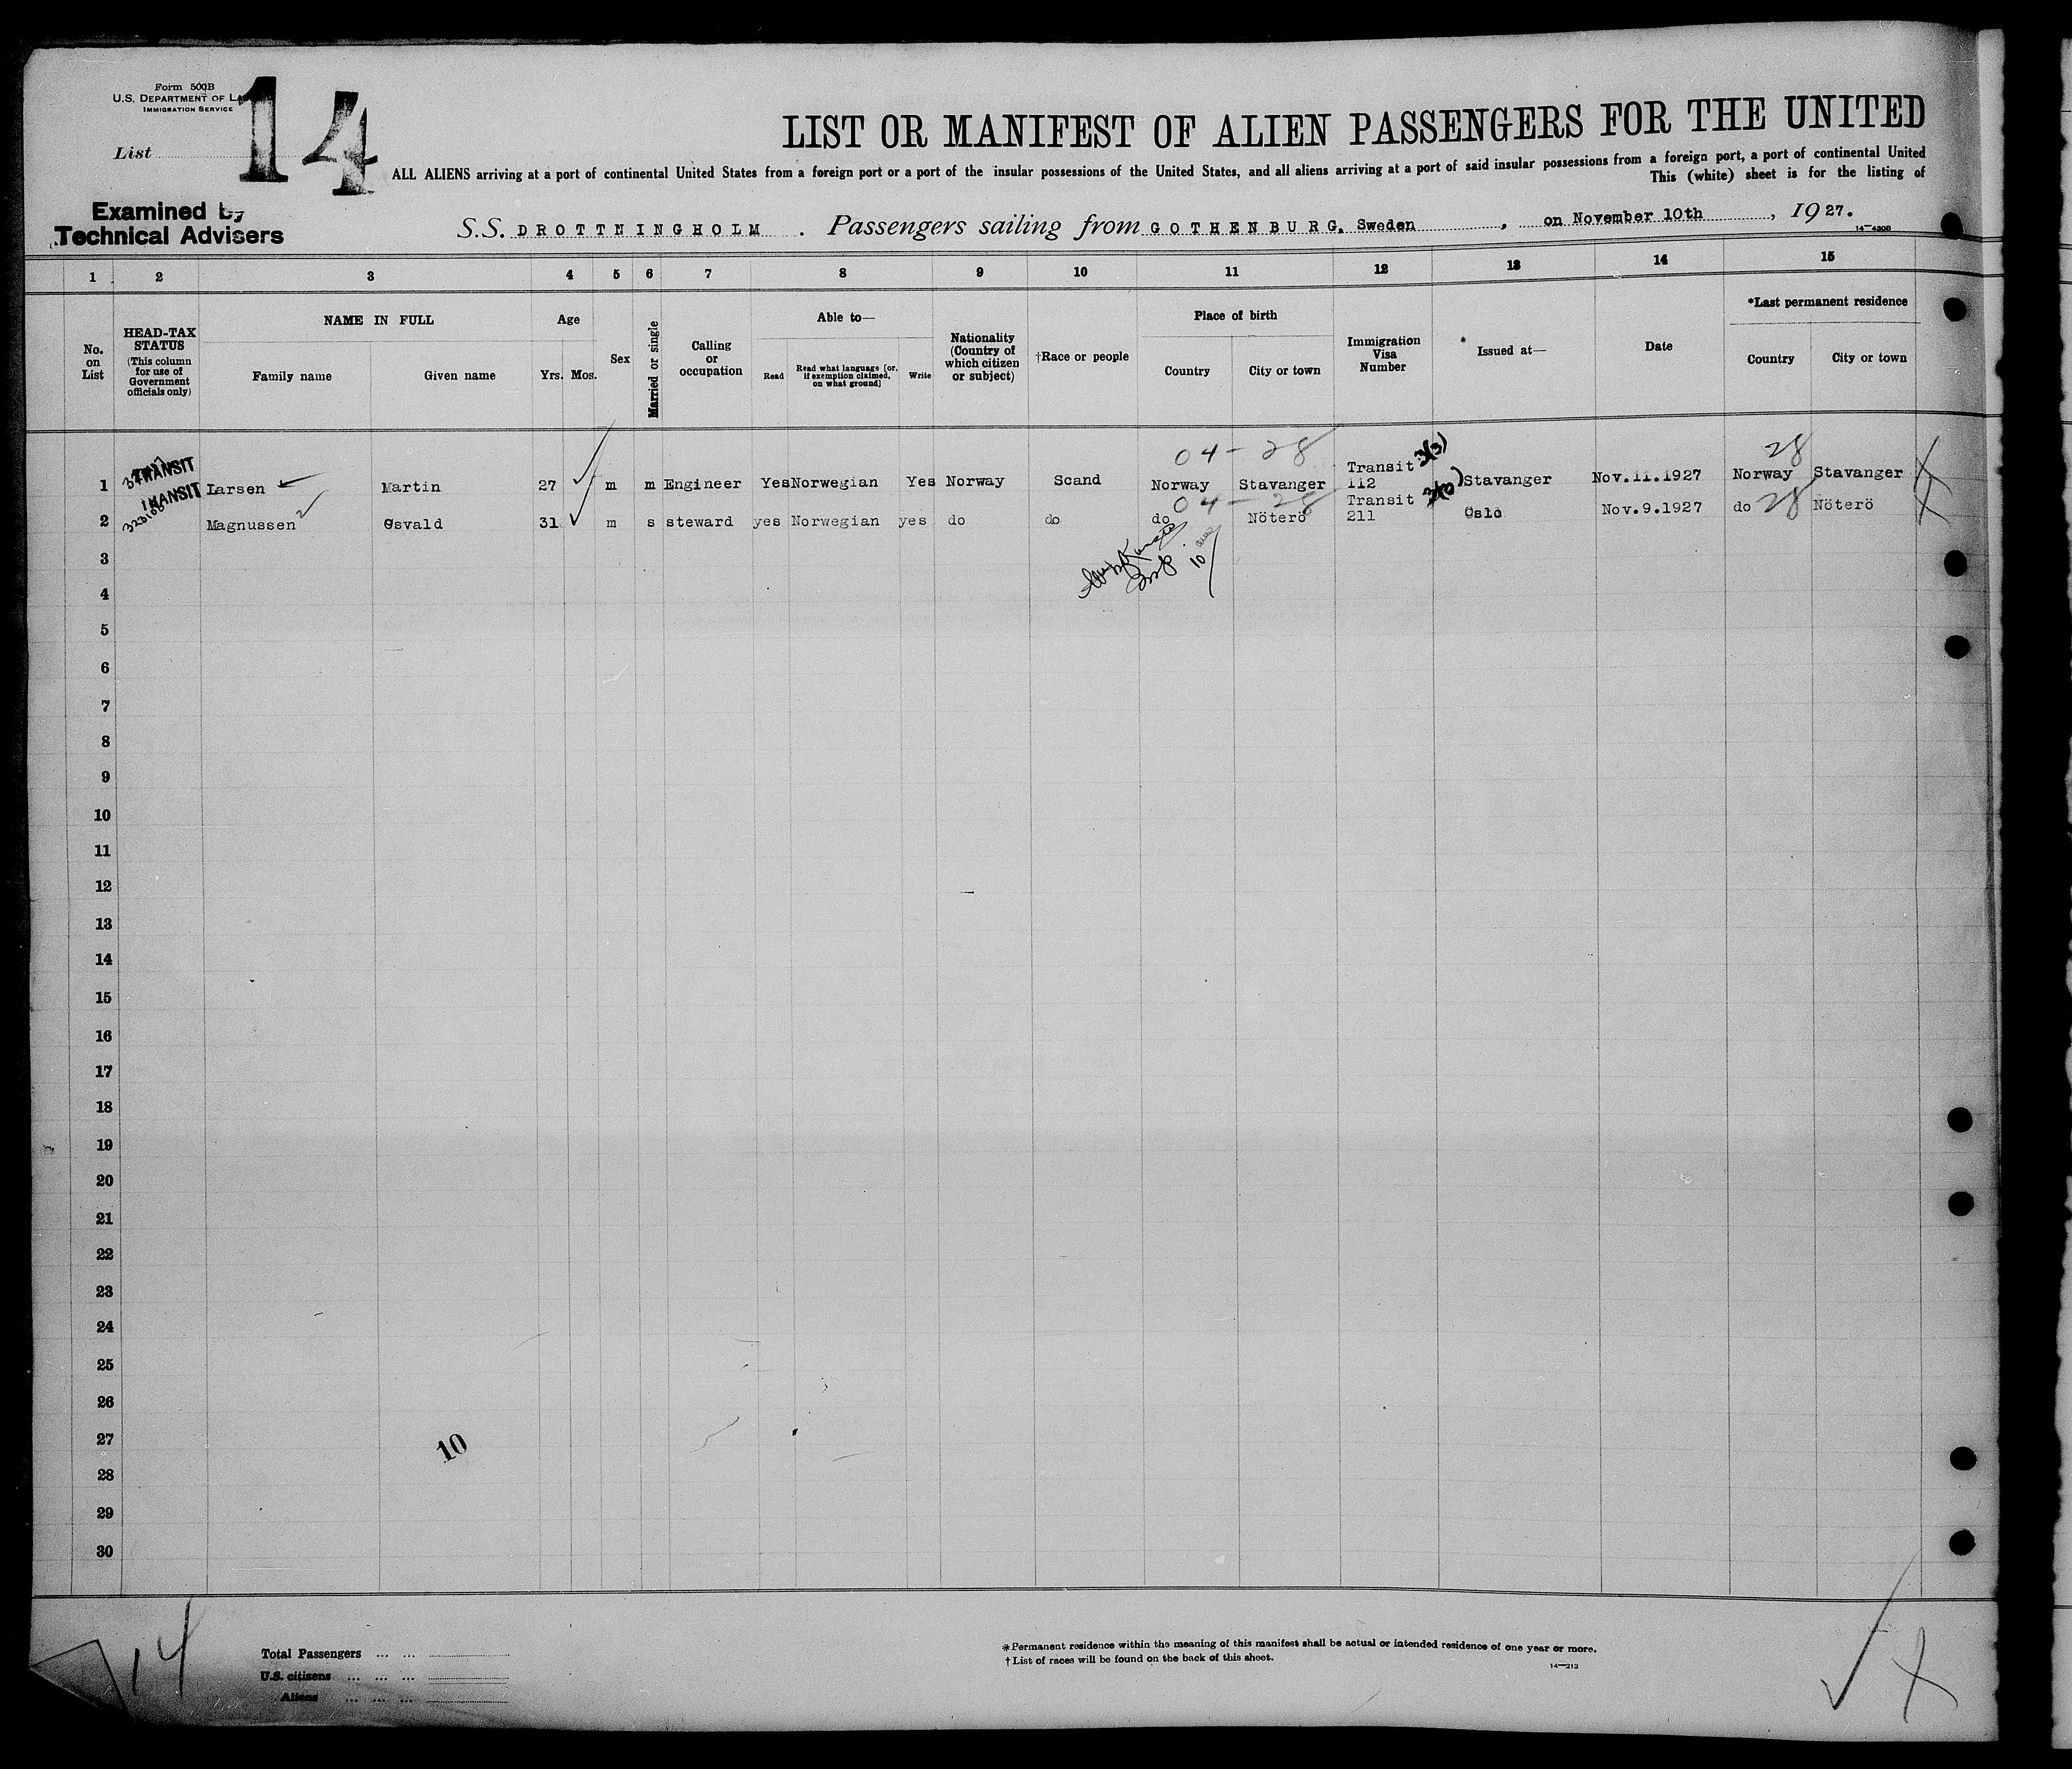 Form 500B
U.S. DEPARTMENT OF LA
IMMIGRATION SERVICE
List
14
LIST OR MANIFEST OF ALIEN PASSENGERS FOR THE UNITED
ALL ALIENS arriving at a port of continental United States from a foreign port or a port of the insular possessions of the United States, and all aliens arriving at a port of said insular possessions from a foreign port, a port of continental United
This (white) sheet is for the listing of
Examined by
Technical Advisers
S.S. DROTTNINGHOLM . Passengers sailing from GOTHENBURG, Sweden , on November 10th , 1927.
14—4306
1 2 3 4 5 6 7 8 9 10 11 12 13 14 15
No. on List
HEAD-TAX STATUS
(This column for use of Government officials only)
NAME IN FULL
Family name Given name
Age
Yrs. Mos.
Sex
Married or single
Calling or occupation
Able to—
Read
Read what language (or, if exemption claimed, on what ground)
Write
Nationality (Country of which citizen or subject)
†Race or people
Place of birth
Country City or town
Immigration Visa Number
* Issued at—
Date
*Last permanent residence
Country City or town
04-28
3(3)
28
1 TRANSIT Larsen Martin 27 m m Engineer Yes Norwegian Yes Norway Scand Norway Stavanger Transit 112 Stavanger Nov.11.1927 Norway Stavanger
04-28
2 TRANSIT Magnussen Osvald 31 m s steward yes Norwegian yes do do do Nöterö Transit 211 Oslo Nov.9.1927 do 28 Nöterö
10
3
4
5
6
7
8
9
10
11
12
13
14
15
16
17
18
19
20
21
22
23
24
25
26
27
10
28
29
30
14
Total Passengers ... ...
U.S. citizens ... ... ...
Aliens ... ... ...
* Permanent residence within the meaning of this manifest shall be actual or intended residence of one year or more.
† List of races will be found on the back of this sheet.
14—213